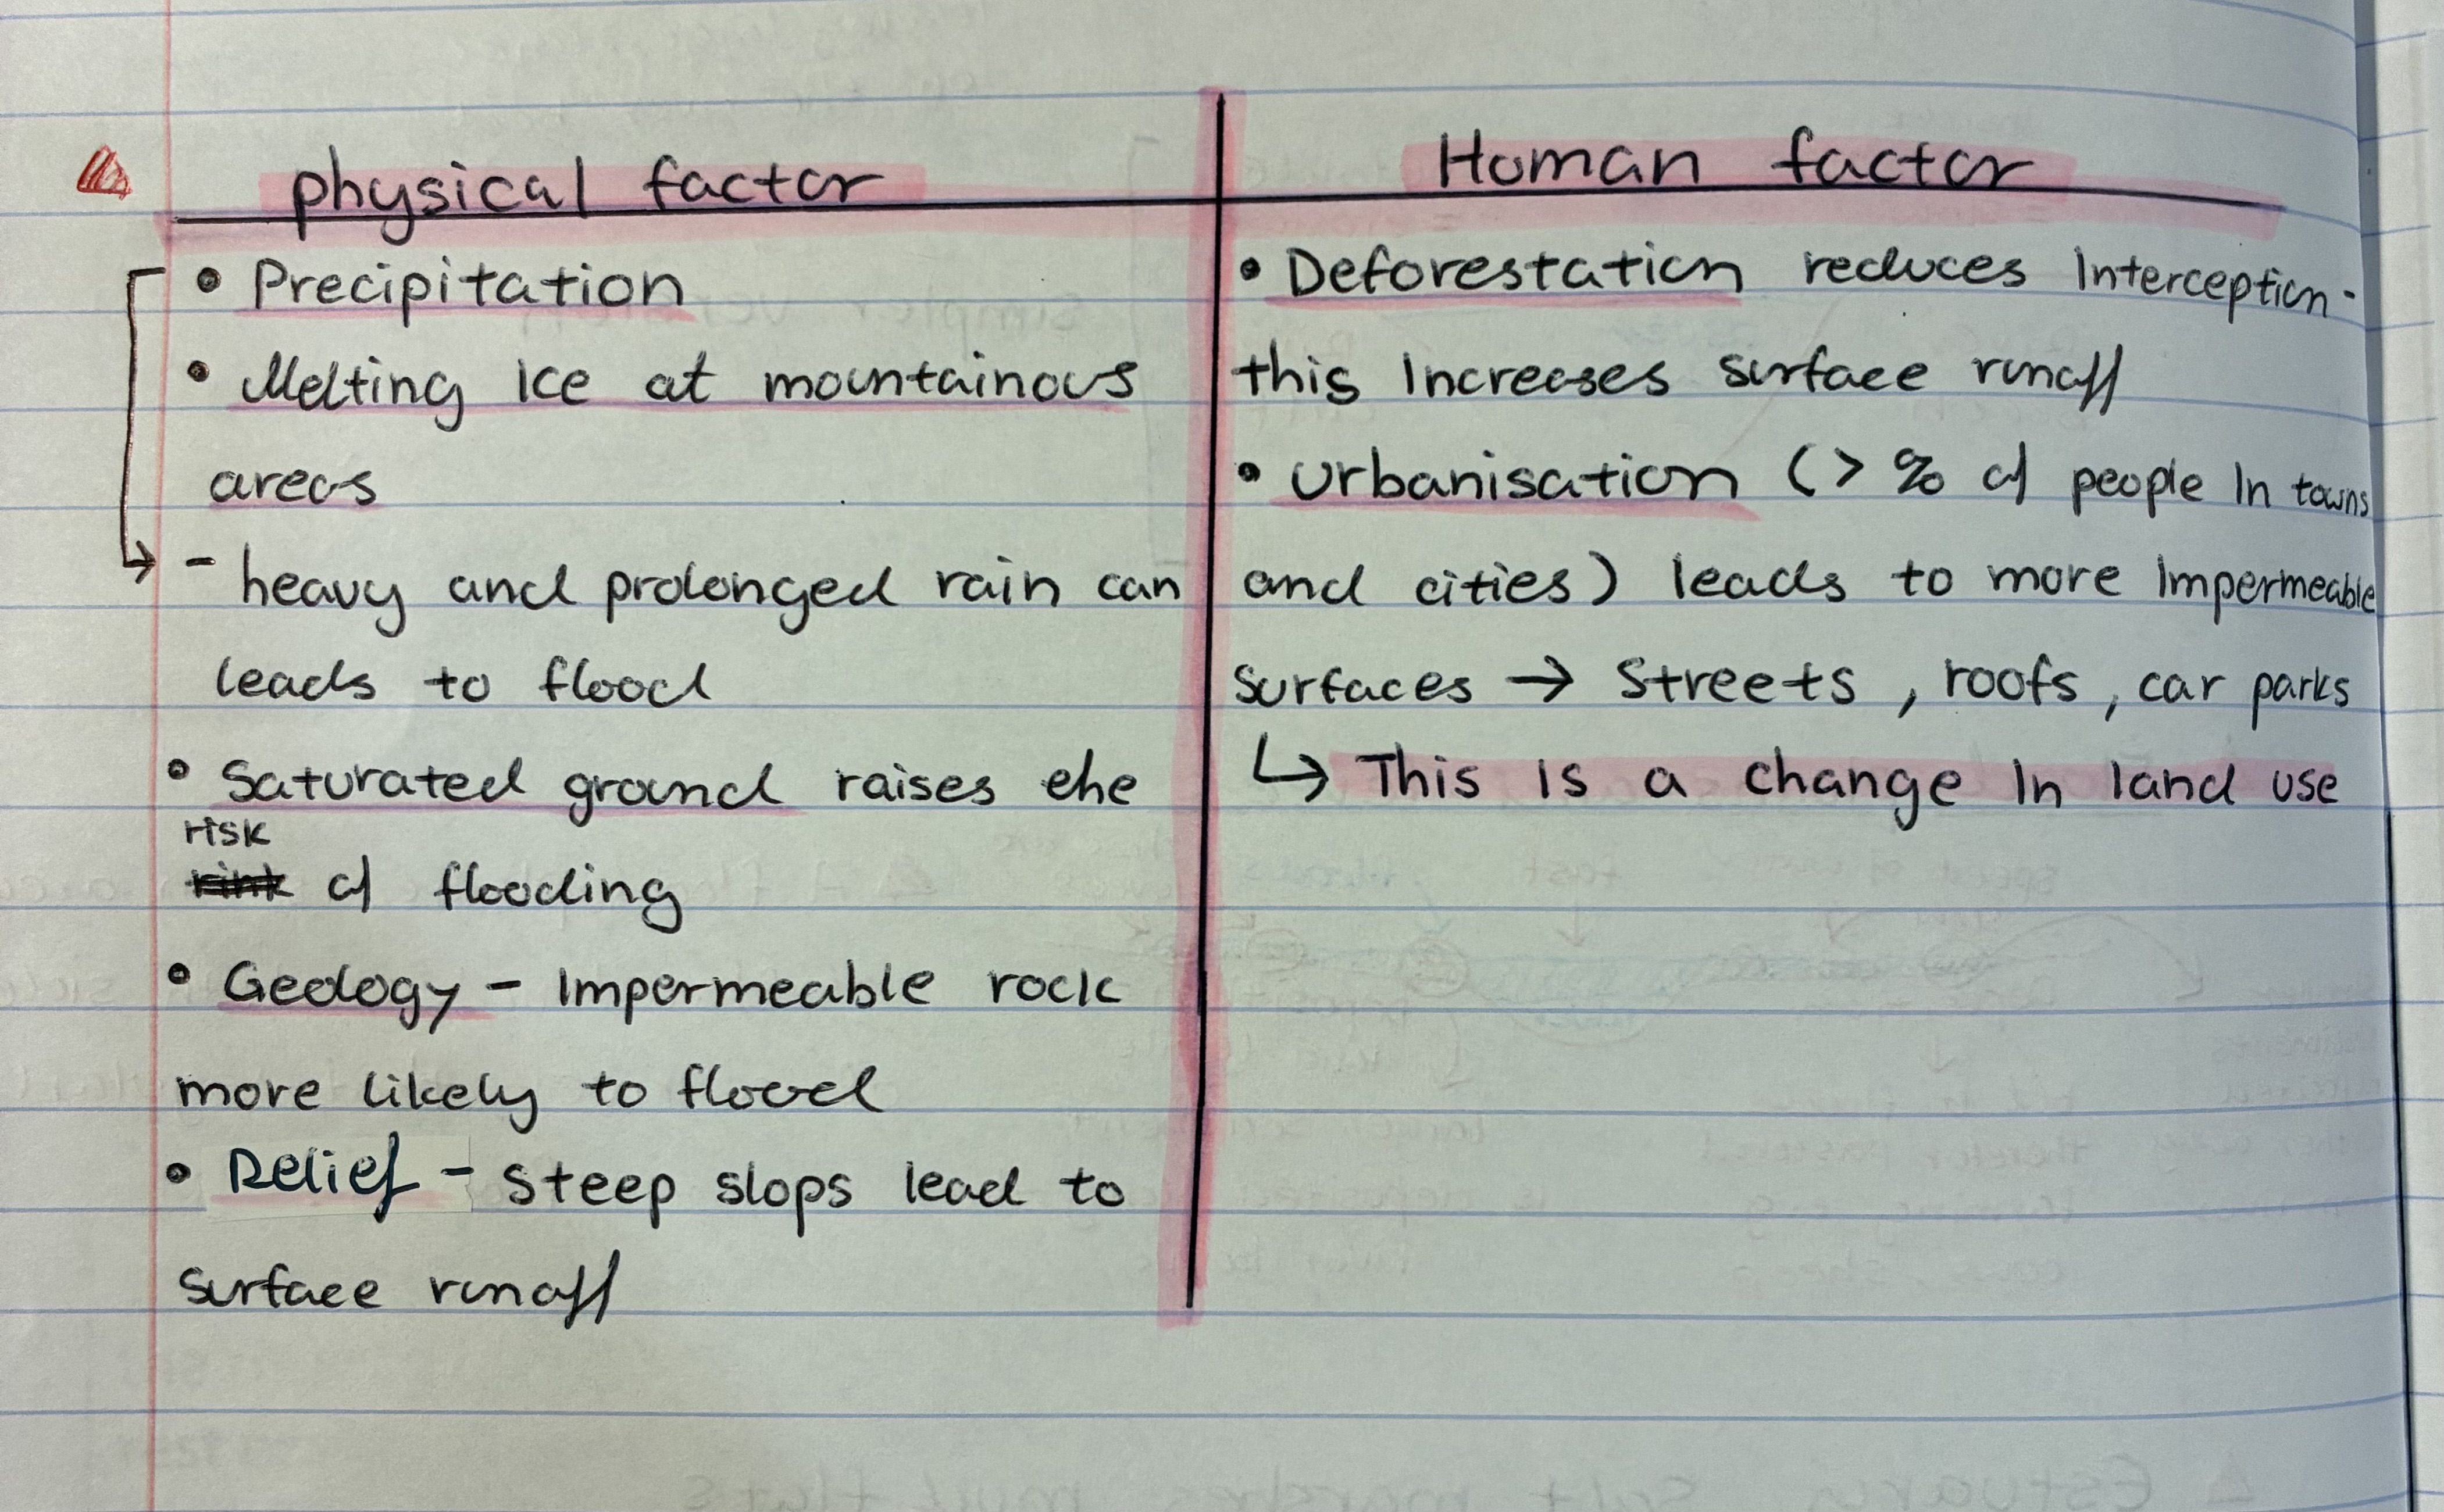 physical factor
• Precipitation
• Melting Ice at mountainous
areas
- heavy and prolonged rain can
leads to flood
• Saturated ground raises the
risk
of flooding
• Geology - Impermeable rock
more likely to flood
• Relief - Steep slops lead to
surface runoff
Human factor
• Deforestation reduces Interception.
this Increases surface runoff
• Urbanisation (> % of people In towns
and cities) leads to more Impermeable
surfaces → Streets, roofs, car parks
↳ This Is a change In land use